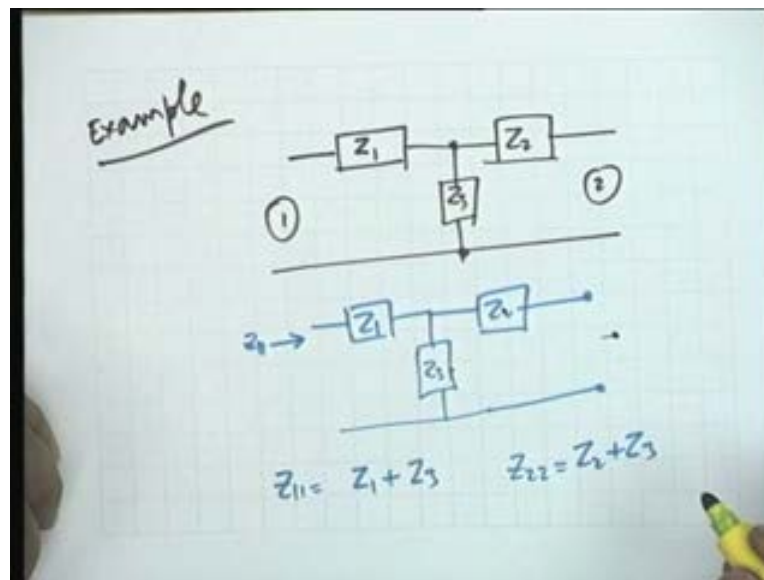 Example
Z₁ Z₂
Z₃
① ②
Z₁ Z₂
Z₁₁ →
Z₃
Z₁₁ = Z₁ + Z₃ Z₂₂ = Z₂ + Z₃